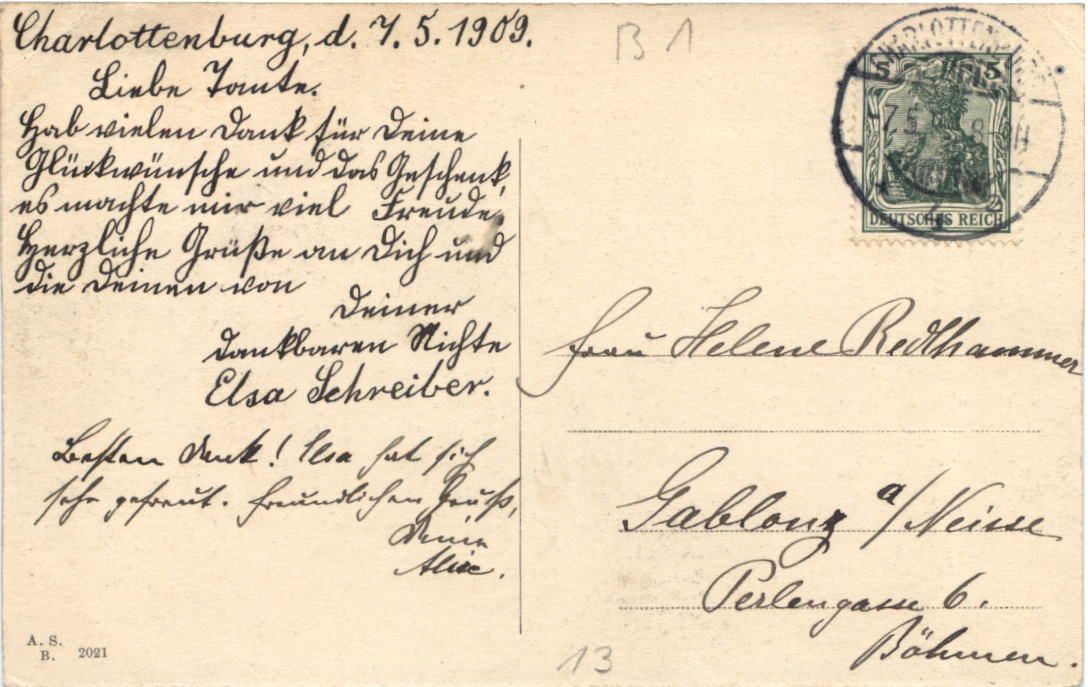 Charlottenburg, d. 7.5.1909.
Liebe Tante.
Hab vielen Dank für Deine
Glückwünsche und das Geschenk,
es machte mir viel Freude.
Herzliche Grüße an Dich und
die Deinen von
Deiner
dankbaren Nichte
Elsa Schreiber.
Besten Dank! Elsa hat sich
sehr gefreut. Freundlichen Gruß,
Deine
Alice.
A. S.
B. 2021
B 1
CHARLOTTENBURG
7.5.
8-
5 5
DEUTSCHES REICH
Frau Helene Redlhammer
Gablonz a/Neisse
Perlengasse 6.
Böhmen.
13